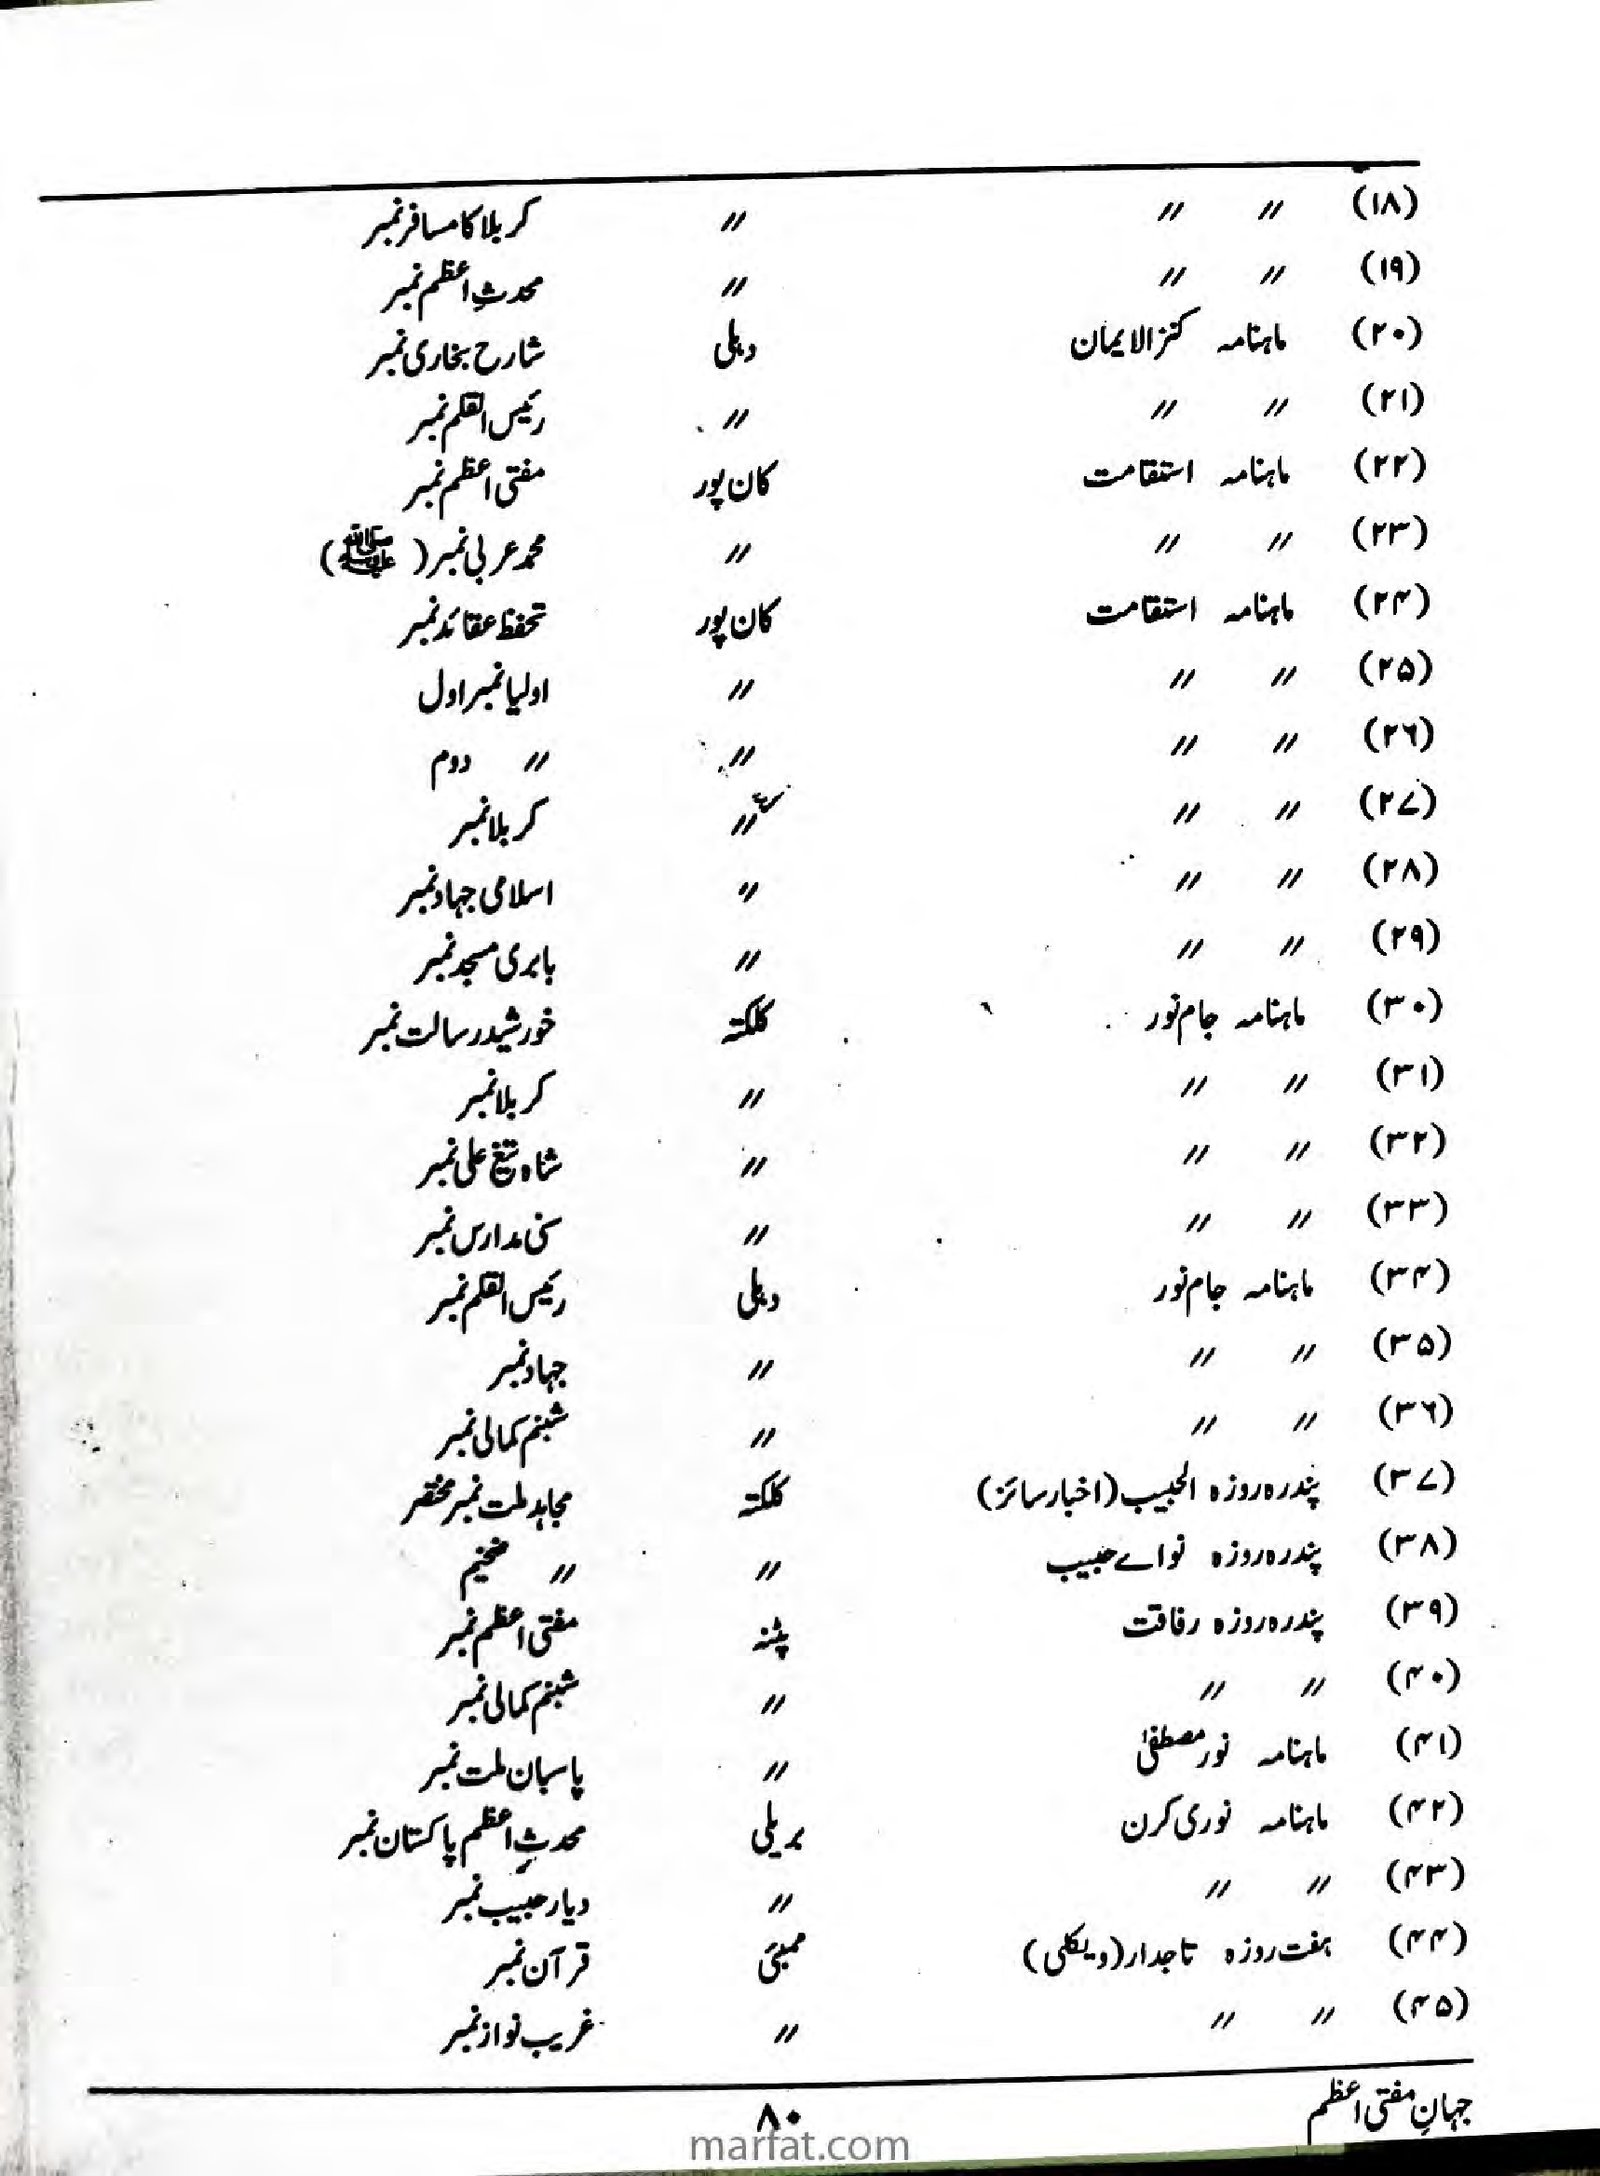 (۱۸)〃 〃 〃 کربلا کا مسافر نمبر
(۱۹) 〃 〃 〃 محدثِ اعظم نمبر
(۲۰) ماہنامہ کنزالایمان دہلی شارح بخاری نمبر
(۲۱) 〃 〃 〃 رئیس القلم نمبر
(۲۲) ماہنامہ استقامت کان پور مفتی اعظم نمبر
(۲۳) 〃 〃 〃 محمد عربی نمبر (ﷺ)
(۲۴) ماہنامہ استقامت کان پور تحفظ عقائد نمبر
(۲۵) 〃 〃 〃 اولیا نمبر اول
(۲۶) 〃 〃 〃 〃 دوم
(۲۷) 〃 〃 〃 کربلا نمبر
(۲۸) 〃 〃 〃 اسلامی جہاد نمبر
(۲۹) 〃 〃 〃 بابری مسجد نمبر
(۳۰) ماہنامہ جام نور کلکتہ خورشید رسالت نمبر
(۳۱) 〃 〃 〃 کربلا نمبر
(۳۲) 〃 〃 〃 شاہ تیغ علی نمبر
(۳۳) 〃 〃 〃 سنی مدارس نمبر
(۳۴) ماہنامہ جام نور دہلی رئیس القلم نمبر
(۳۵) 〃 〃 〃 جہاد نمبر
(۳۶) 〃 〃 〃 شبنم کمالی نمبر
(۳۷) پندرہ روزہ الحبیب (اخبار سائز) کلکتہ مجاہد ملت نمبر مختصر
(۳۸) پندرہ روزہ نواے حبیب 〃 〃 ضخیم
(۳۹) پندرہ روزہ رفاقت پٹنہ مفتی اعظم نمبر
(۴۰) 〃 〃 〃 شبنم کمالی نمبر
(۴۱) ماہنامہ نور مصطفیٰ 〃 پاسبان ملت نمبر
(۴۲) ماہنامہ نوری کرن بریلی محدثِ اعظم پاکستان نمبر
(۴۳) 〃 〃 〃 دیار حبیب نمبر
(۴۴) ہفت روزہ تاجدار (ویکلی) ممبئی قرآن نمبر
(۴۵) 〃 〃 〃 غریب نواز نمبر
جہانِ مفتی اعظم
۸۰
marfat.com